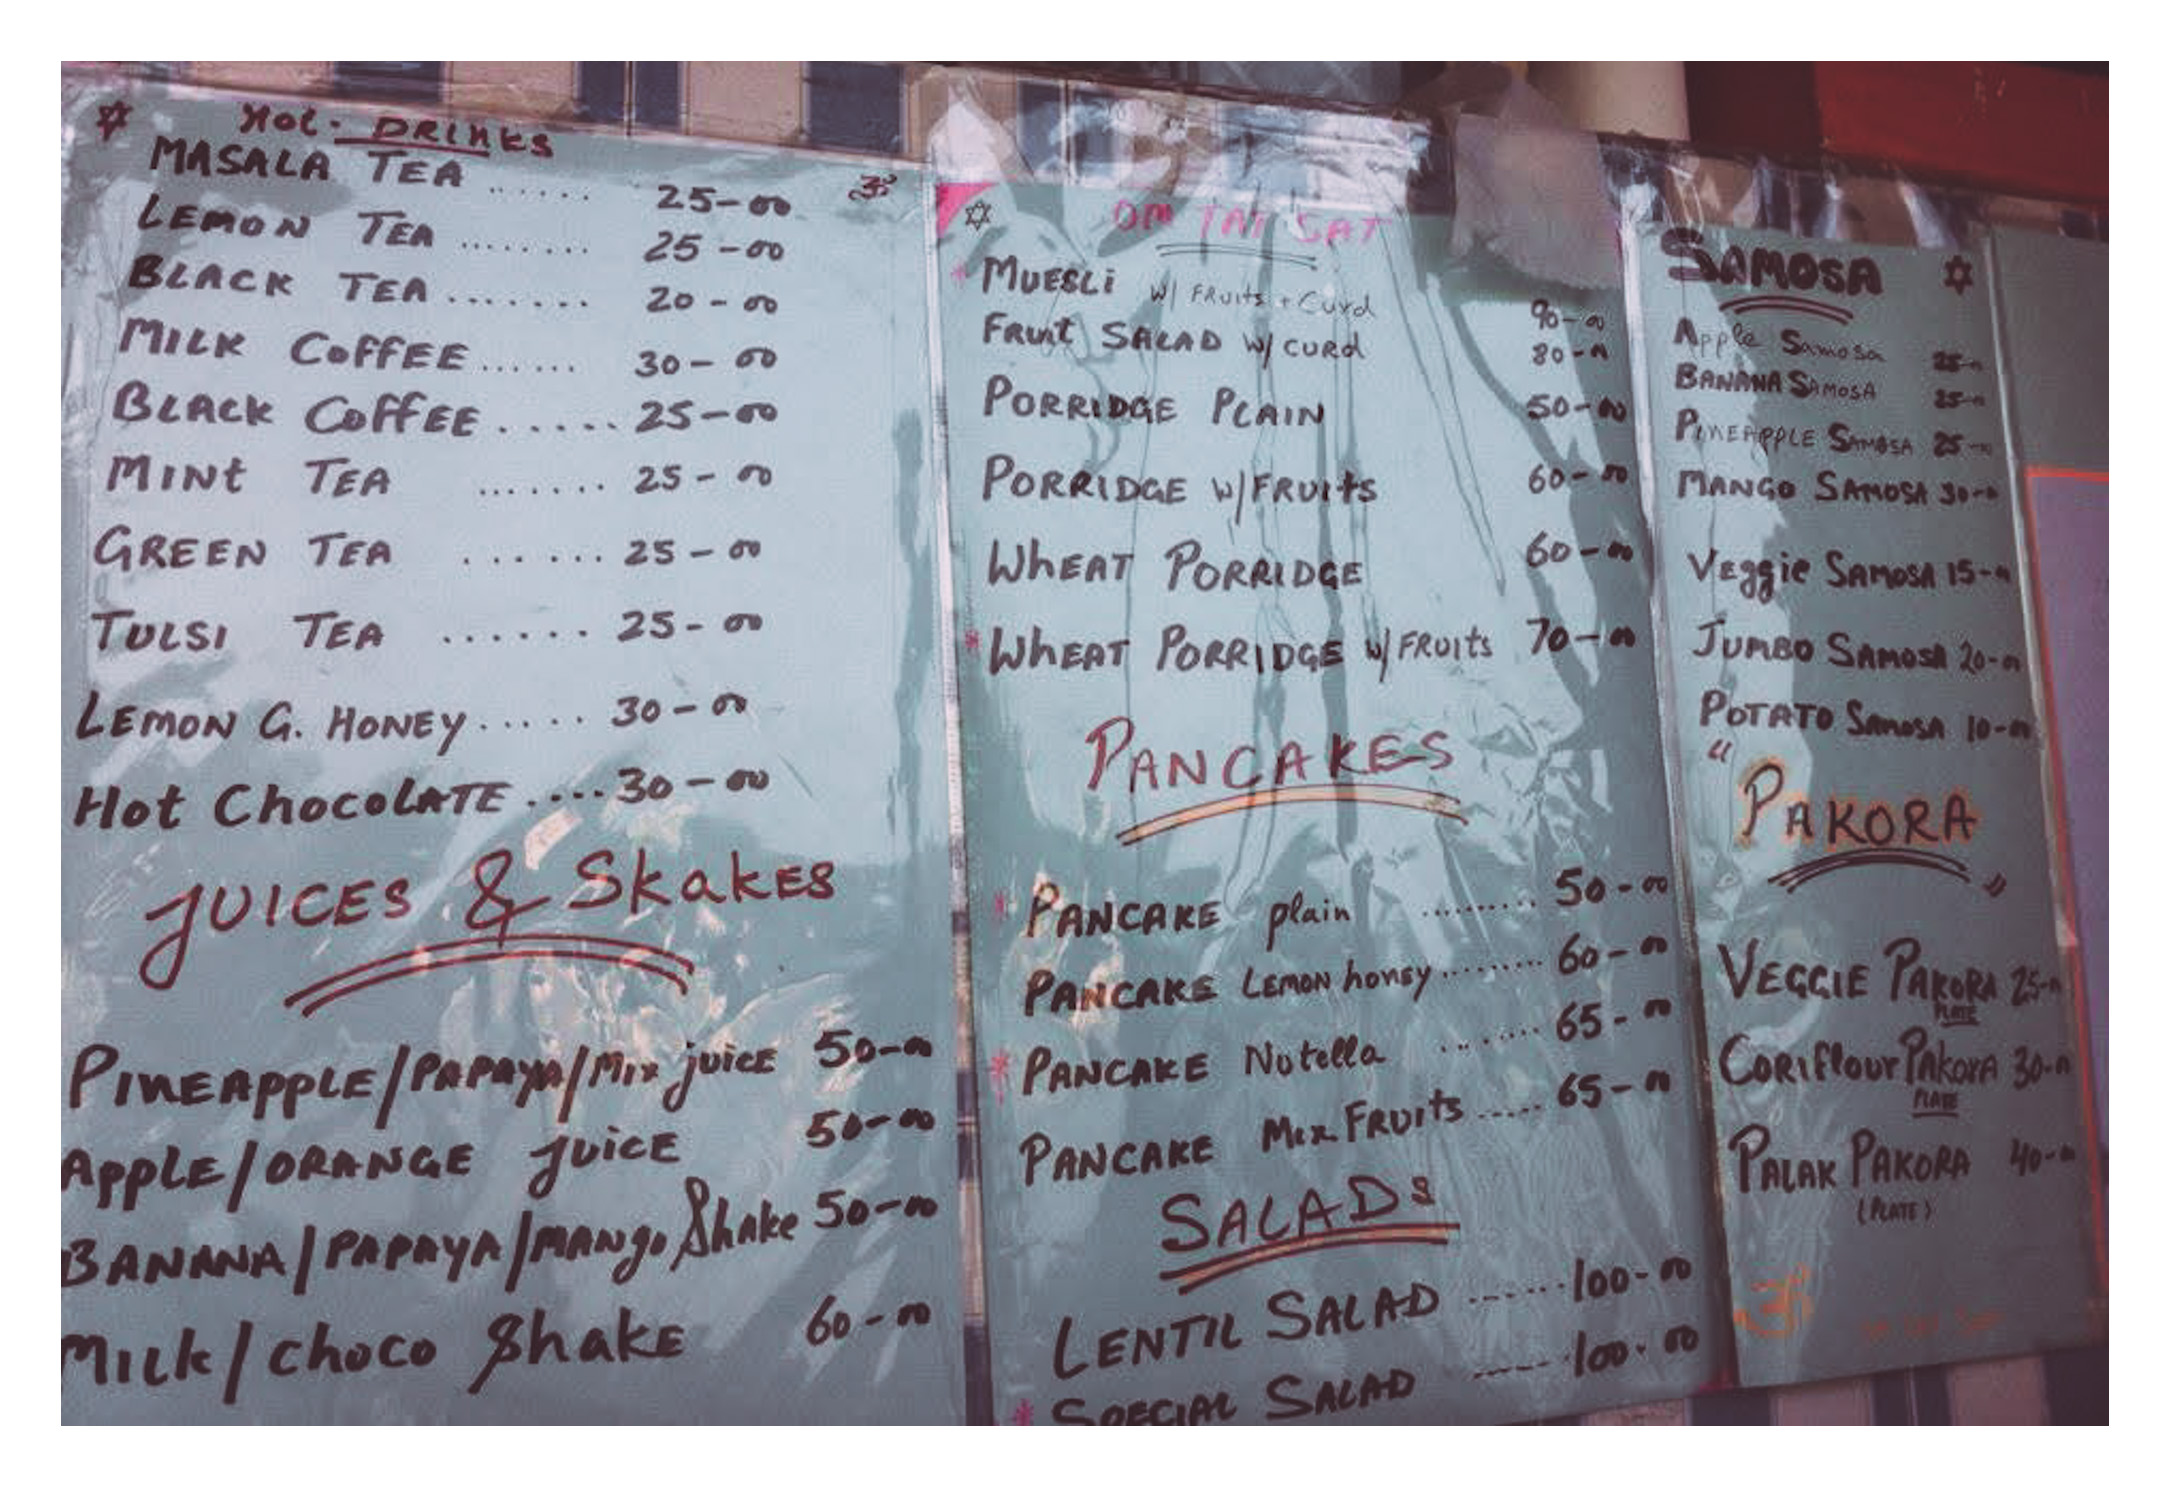 Hot - DRINKS
MASALA TEA ...... 25-00
ॐ
LEMON TEA ........ 25-00
BLACK TEA ....... 20-00
MILK COFFEE ...... 30-00
BLACK COFFEE ...... 25-00
MINt TEA ....... 25-00
GREEN TEA ....... 25-00
TULSI TEA ....... 25-00
LEMON G. HONEY ..... 30-00
Hot ChocoLATE .... 30-00
JUICES & SkakES
PINEAPPLE/PAPAYA/Mix juicE 50-00
APPLE/ORANGE juicE 50-00
BANANA/PAPAYA/MANgo Shake 50-00
MILk/choco Shake 60-00
OM TAT SAT
MUESLi W/ FRUits + Curd 90-00
FRUit SALAD W/ CURd 80-00
PORRIDGE PLAIN 50-00
PORRIDGE W/FRUits 60-00
WhEAT PORRIDGE 60-00
WhEAT PORRIDGE W/ FRUits 70-00
PANCAKES
PANCAKE plain ......... 50-00
PANCAKE LEMON honey ........ 60-00
PANCAKE Nutella ....... 65-00
PANCAKE Mix FRUits ..... 65-00
SALADs
LENTIL SALAD ...... 100-00
SPECIAL SALAD ..... 100-00
SAMOSA
Apple Samosa 25-00
BANANA SAMOSA 25-00
PINEAPPLE SAMOSA 25-00
MANGO SAMOSA 30-00
Veggie SAMOSA 15-00
JUMBO SAMOSA 20-00
POTATO SAMOSA 10-00
"PAKORA"
VEGGIE PAKORA 25-00
PLATE
Coriflour Pakora 30-00
PLATE
PALAK PAKORA 40-00
(PLATE)
ॐ